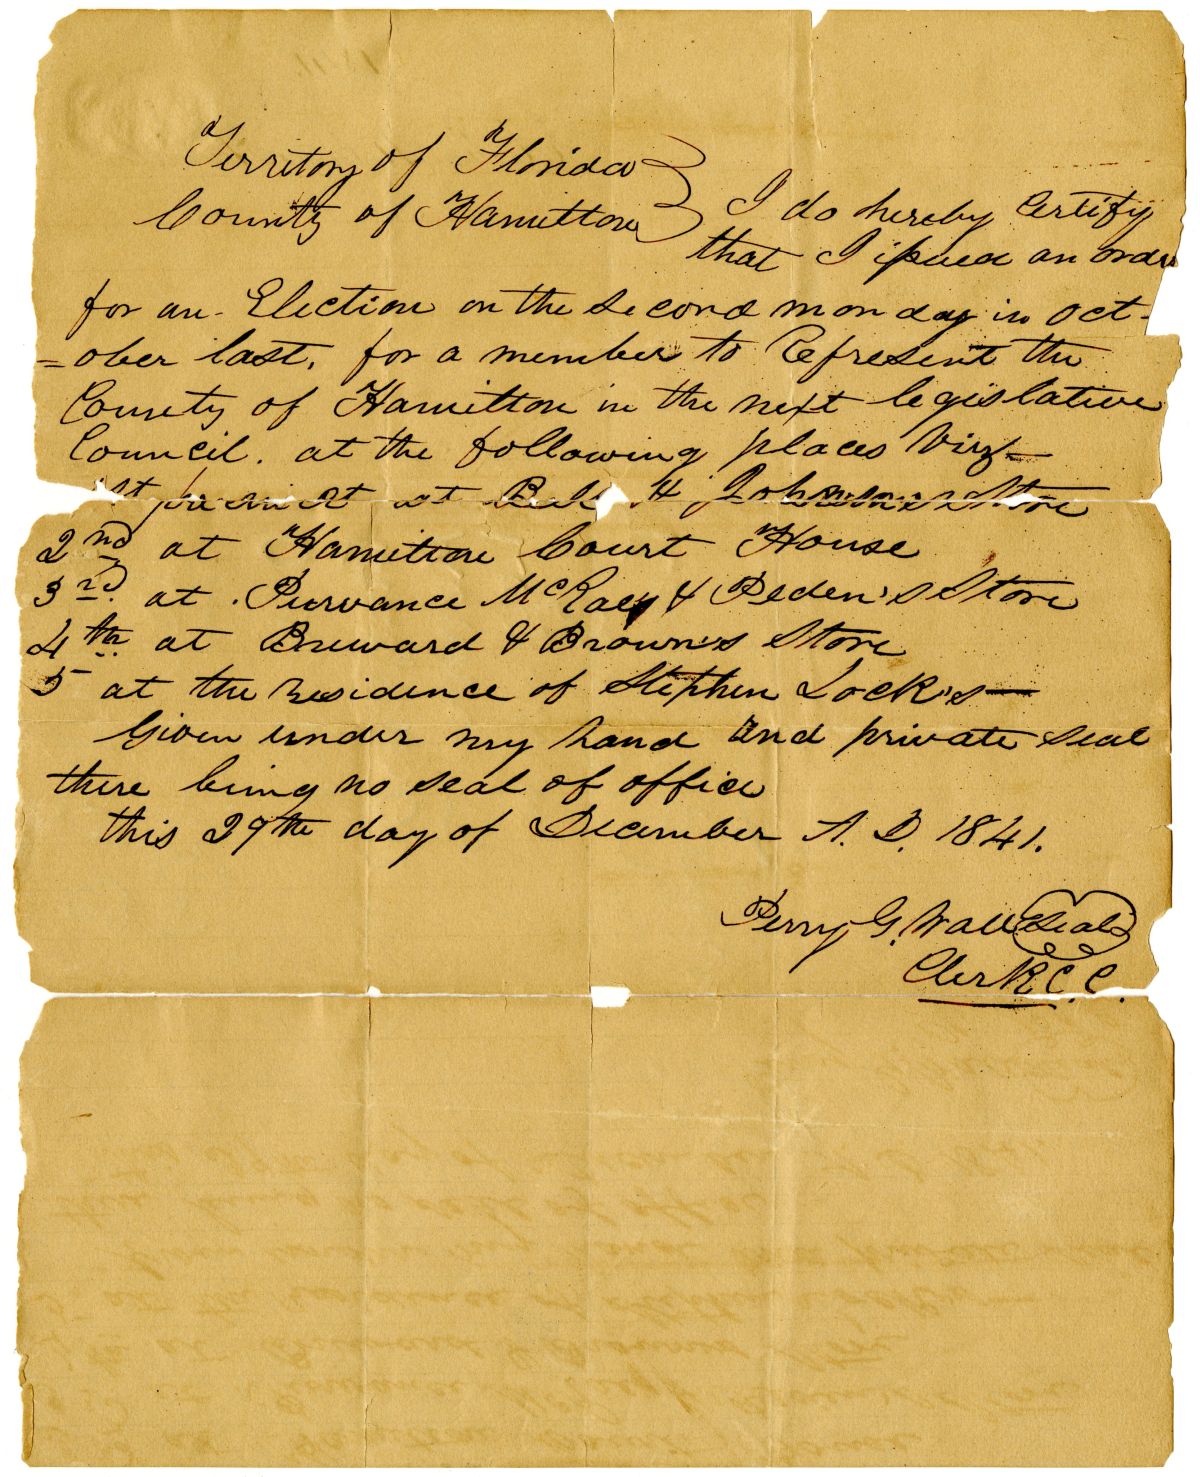 Territory of Florida
County of Hamilton
I do hereby Certify
that I issued an order
for an Election on the second monday in Oct-
=ober last, for a member to Represent the
County of Hamilton in the next legislative
Council. at the following places Viz-
1st precinct at H Johnson's Store
2nd at Hamilton Court House
3rd at Purvance McRaey & Peden's Store
4th at Breward & Brown's Store
5 at the Residence of Stephen Lock's—
Given under my hand and private seal
there being no seal of office
this 29th day of December A. D. 1841.
Perry G. Wall Seal
Clerk C. C.